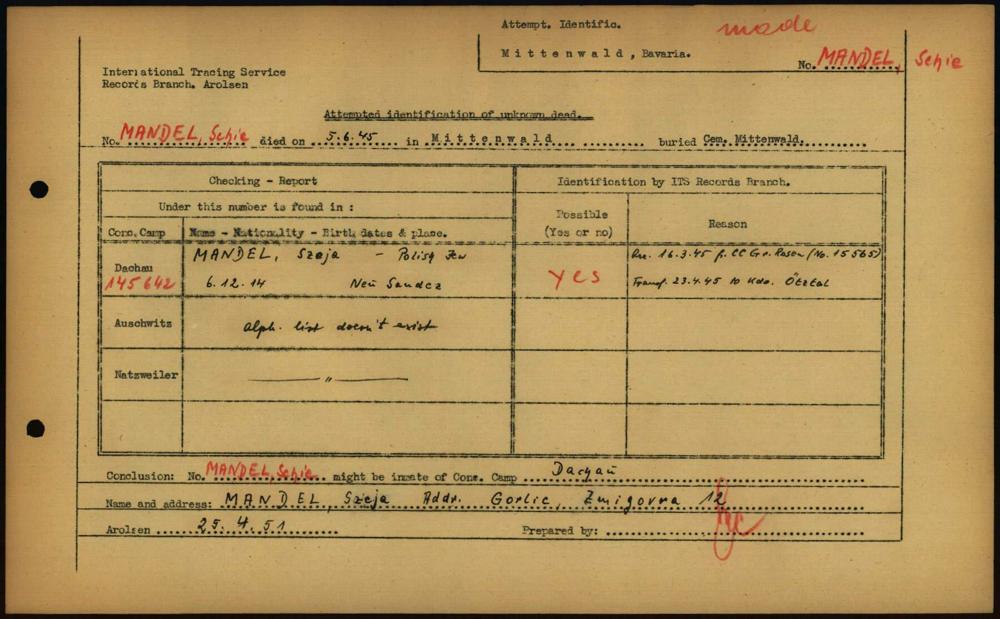 Attempt. Identific.
made
Mittenwald, Bavaria.
No. MANDEL, Schie
International Tracing Service
Records Branch. Arolsen
Attempted identification of unknown dead.
No. MANDEL, Schie died on 5.6.45 in Mittenwald buried Cem. Mittenwald.
Checking - Report
Identification by ITS Records Branch.
Under this number is found in :
Possible
(Yes or no)
Reason
Conc. Camp
Name - Nationality - Birth dates & place.
MANDEL, Szeja - Polish
Arr. 16.3.45 f. CC Gr. Rosen (No. 15565)
Dachau
145642
6.12.14 Neu Sandez
yes
Transf. 23.4.45 to Kdo. Ötztal
Auschwitz
alph. list doesn't exist
Natzweiler
— " —
Conclusion: No. MANDEL, Schie might be inmate of Conc. Camp Dachau
Name and address: MANDEL, Szeja Addr. Gorlic, Zmigowna 12
Arolsen 25.4.51 Prepared by: